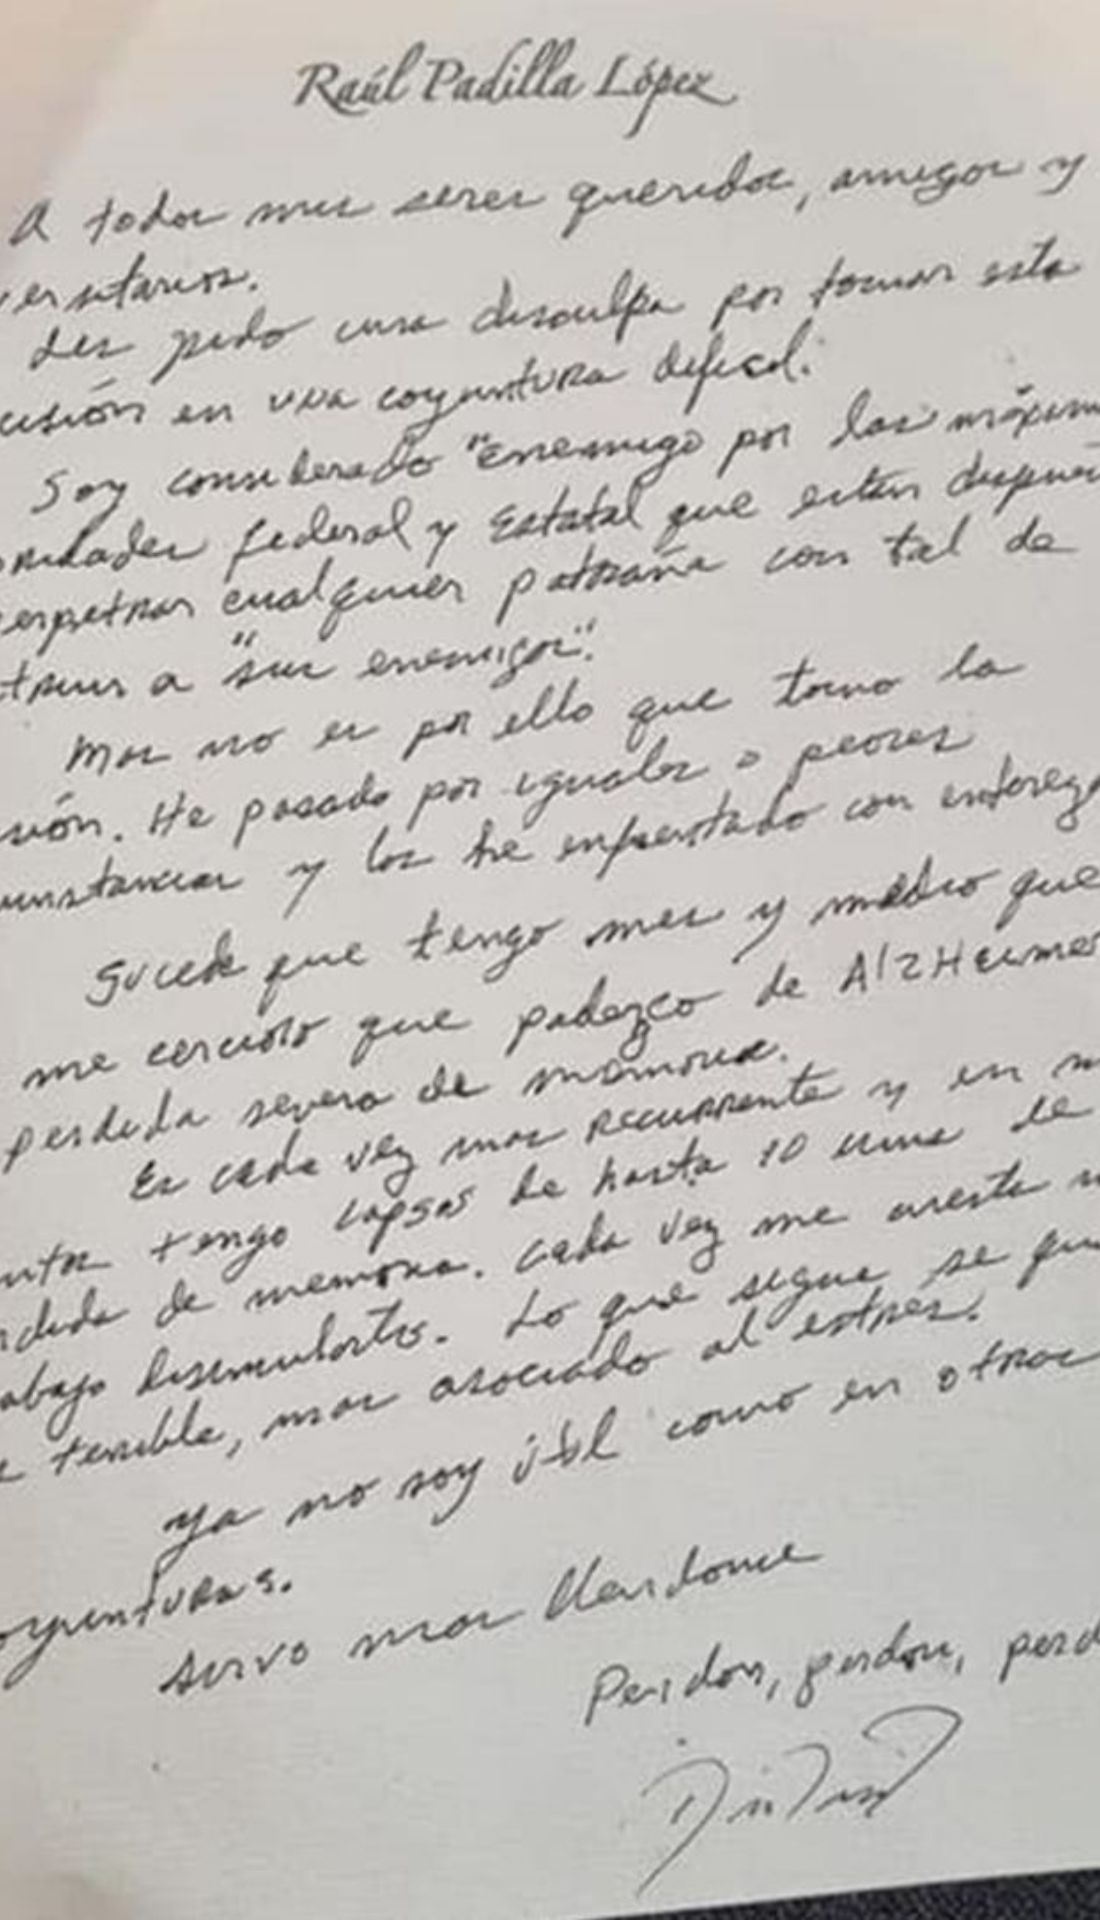 Raúl Padilla López
A todos mis seres queridos, amigos y
versitarios.
Les pido una disculpa por tomar esta
cisión en una coyuntura difícil.
Soy considerado "enemigo por las máxim
oridades federal y Estatal que están después
erpetrar cualquier patraña con tal de
truir a "sus enemigos".
Mas no es por ello que tomo la
sión. He pasado por iguales o peores
unstancias y las he enfrentado con entereza
Sucede que tengo mes y medio que
me cercioro que padezco de AlzHeimer
perdida severa de memoria.
Es cada vez mas recurrente y en m
ntos tengo lapsos de hasta 10 mins de
rdida de memoria. Cada vez me cuesta m
abajo disimularlo. Lo que sigue se que
terrible, mas asociado al estres.
Ya no soy útil como en otras
oyunturas.
Sirvo mas
Perdon, perdon, perd